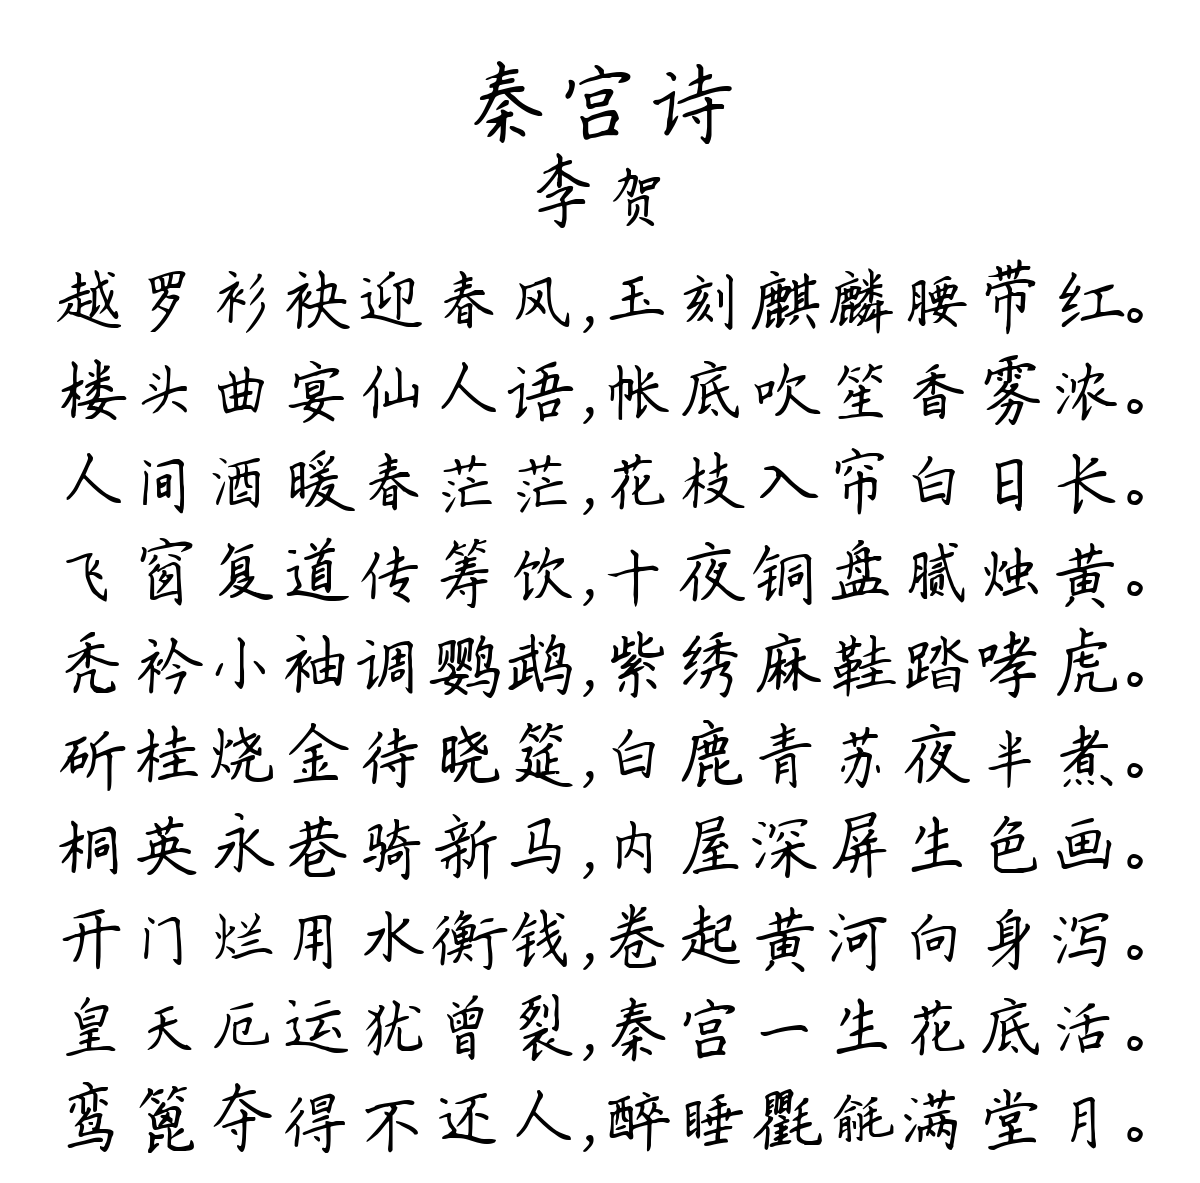 秦宫诗
李贺
越罗衫袂迎春风,玉刻麒麟腰带红。
楼头曲宴仙人语,帐底吹笙香雾浓。
人间酒暖春茫茫,花枝入帘白日长。
飞窗复道传筹饮,十夜铜盘腻烛黄。
秃衿小袖调鹦鹉,紫绣麻鞋踏哮虎。
斫桂烧金待晓筵,白鹿青苏夜半煮。
桐英永巷骑新马,内屋深屏生色画。
开门烂用水衡钱,卷起黄河向身泻。
皇天厄运犹曾裂,秦宫一生花底活。
鸾篦夺得不还人,醉睡氍毹满堂月。